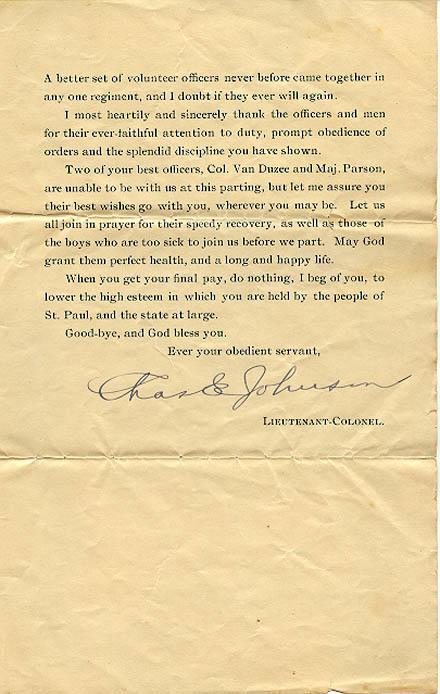 A better set of volunteer officers never before came together in
any one regiment, and I doubt if they ever will again.
I most heartily and sincerely thank the officers and men
for their ever-faithful attention to duty, prompt obedience of
orders and the splendid discipline you have shown.
Two of your best officers, Col. Van Duzee and Maj. Parson,
are unable to be with us at this parting, but let me assure you
their best wishes go with you, wherever you may be. Let us
all join in prayer for their speedy recovery, as well as those of
the boys who are too sick to join us before we part. May God
grant them perfect health, and a long and happy life.
When you get your final pay, do nothing, I beg of you, to
lower the high esteem in which you are held by the people of
St. Paul, and the state at large.
Good-bye, and God bless you.
Ever your obedient servant,
Chas E Johnson
LIEUTENANT-COLONEL.